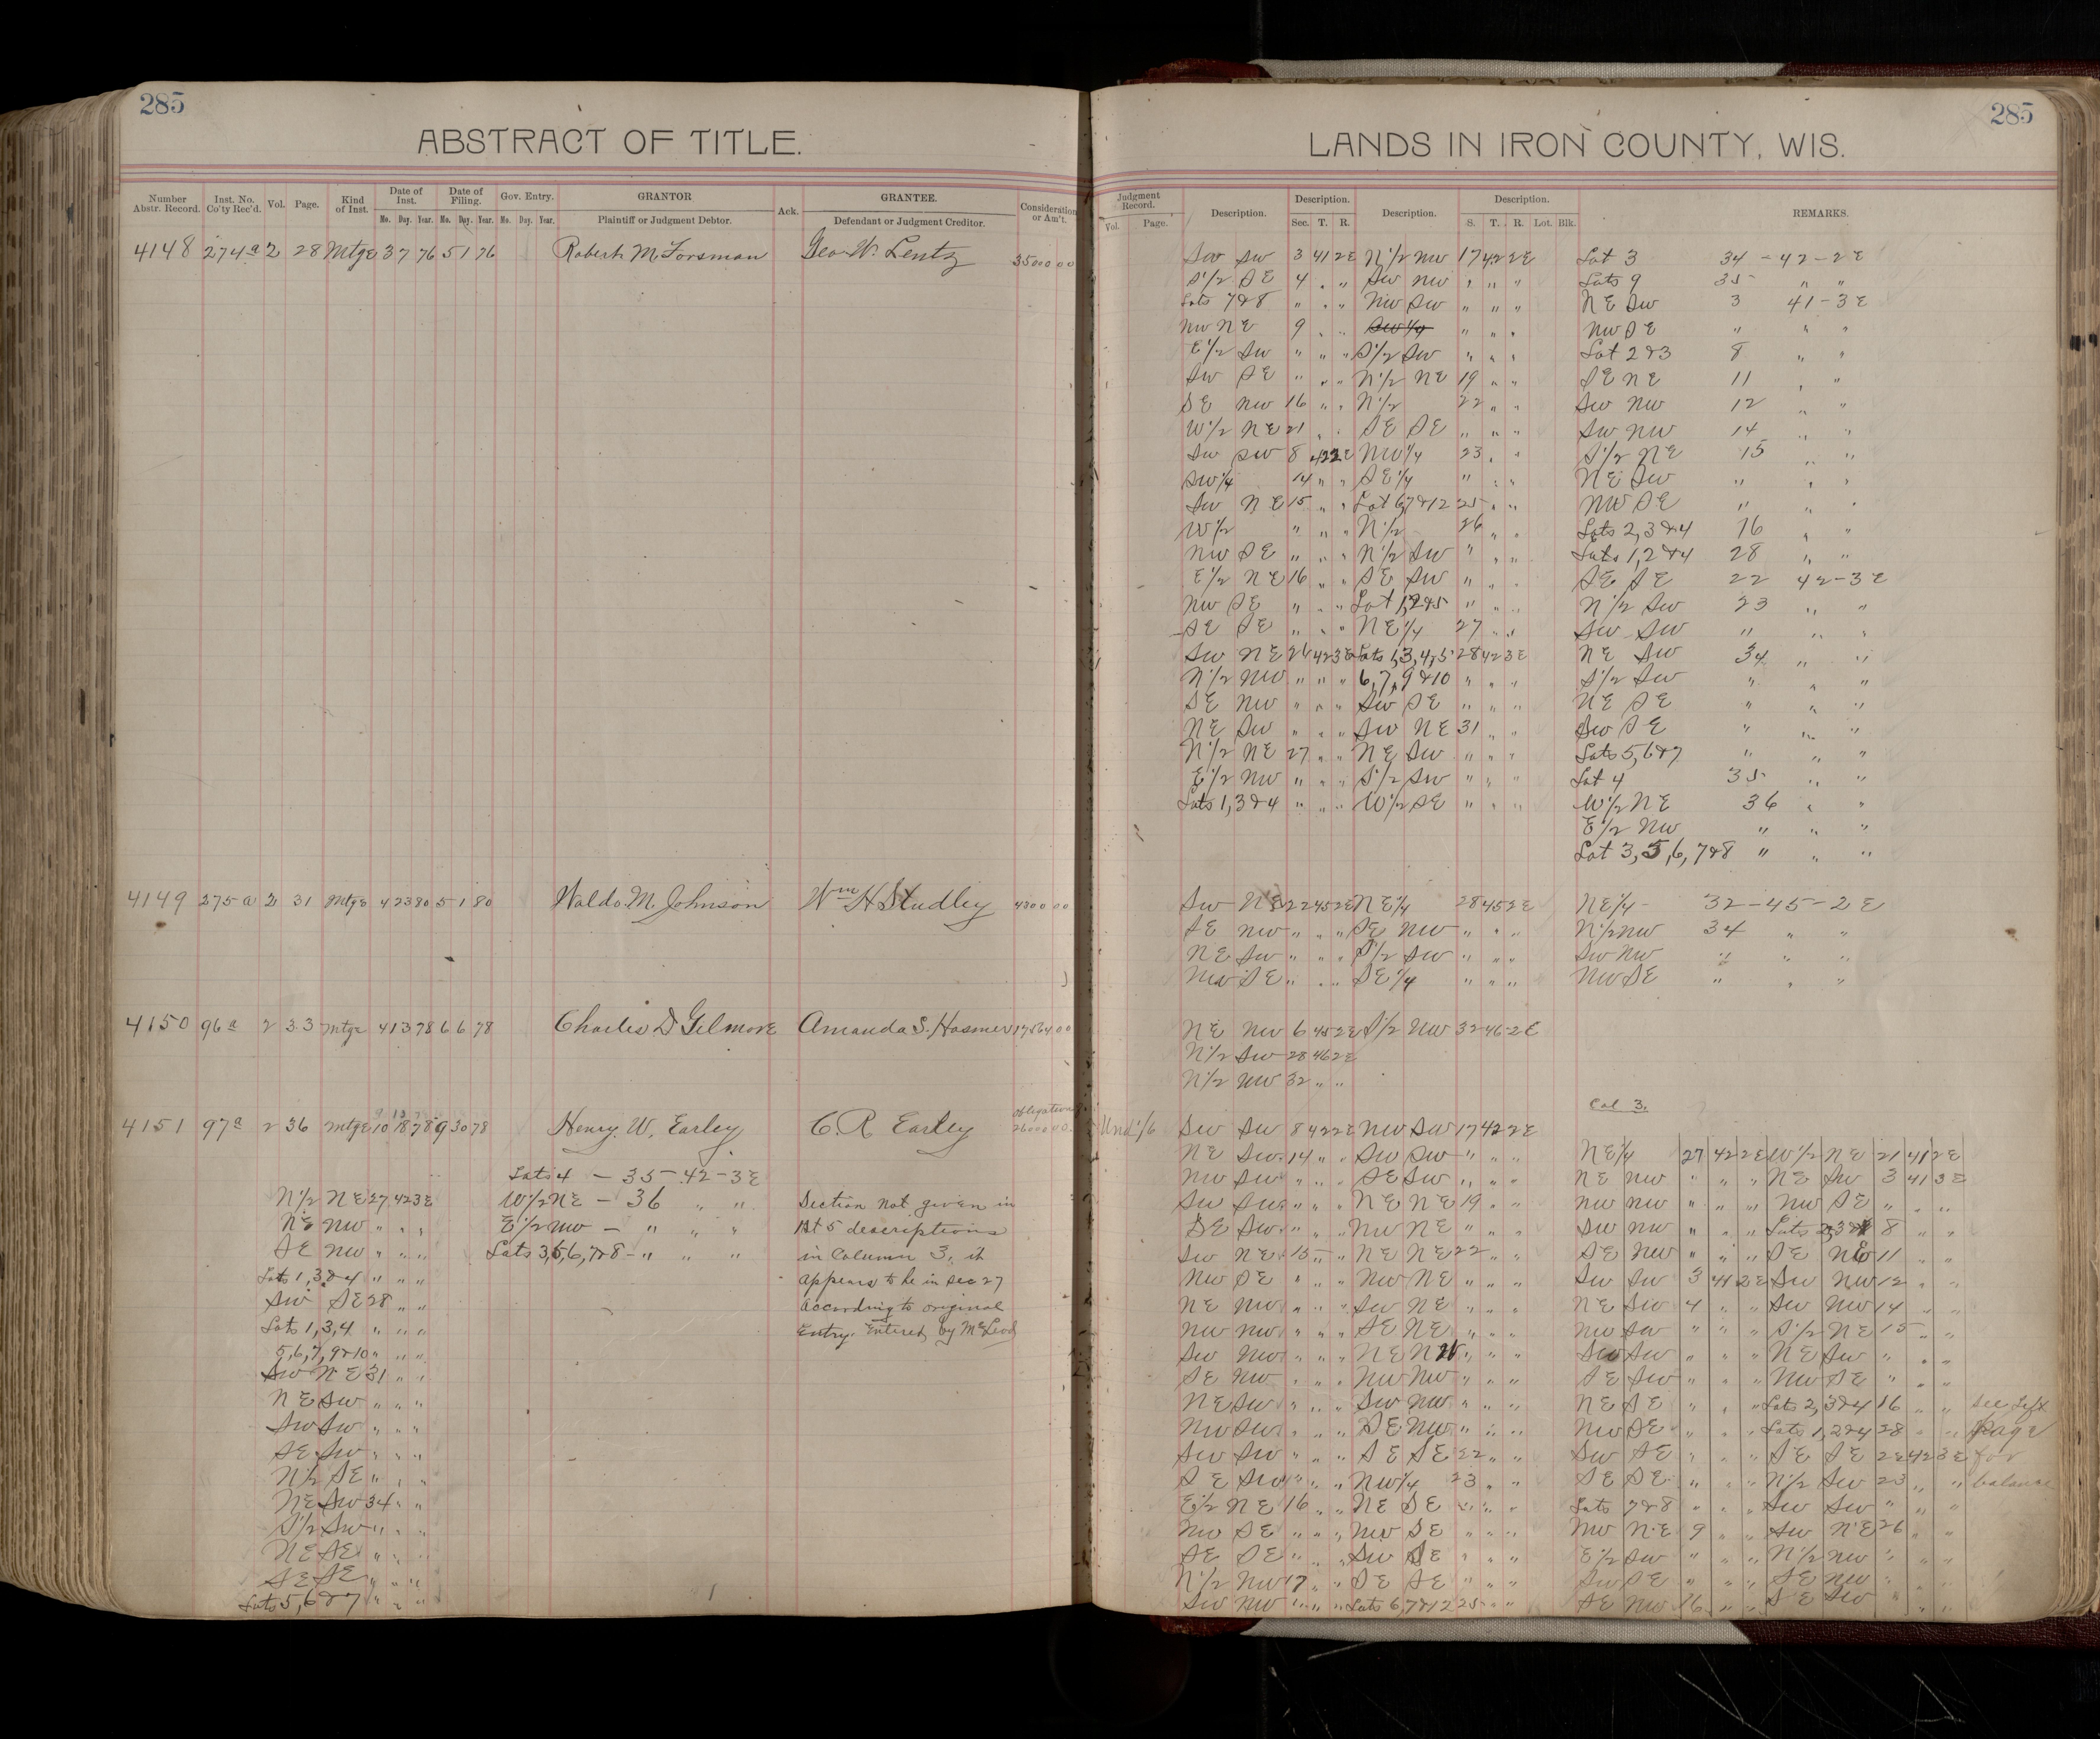 285
ABSTRACT OF TITLE.
Number Abstr. Record. Inst. No. Co'ty Rec'd. Vol. Page. Kind of Inst. Date of Inst. Mo. Day. Year. Date of Filing. Mo. Day. Year. Gov. Entry. Mo. Day. Year. GRANTOR Plaintiff or Judgment Debtor. Ack. GRANTEE. Defendant or Judgment Creditor. Consideration or Am't.
4148 274a 2 28 Mtge 3 7 76 5 1 76 Robert M. Forsman Geo. W. Lentz 35000 00
4149 275a 2 31 Mtge 4 23 80 5 1 80 Waldo M. Johnson Wm H Studley 4300 00
4150 96a 2 33 Mtge 4 13 78 6 6 78 Charles D Gilmore Amanda S. Hosmer
4151 97a 2 36 Mtge 10 18 78 9 30 78 Henry W. Earley C. R Earley
Lots 4 - 35 - 42 - 3E
N1/2 NE 27 42 3E W1/2 NE - 36 " " Section not given in
NE NW " " " E1/2 NW - " " " 1st 5 descriptions
SE NW " " " Lots 3,5,6,7&8 - " " " in Column 3, it
Lots 1,3&4 " " " appears to be in Sec 27
SW SE 28 " " according to original
Lots 1,3,4 " " " Entry. Entered by McLeod
5,6,7,9&10 " " "
SW NE 31 " "
NE SW " " "
SW SW " " "
SE SW " " "
N1/2 SE " " "
NE SW 34 " "
S1/2 SW " " "
NE SE " " "
SE SE " " "
Lots 5,6&7 " " "
285
LANDS IN IRON COUNTY, WIS.
Judgment Record. Vol. Page. Description. Description. Sec. T. R. Description. Description. S. T. R. Lot. Blk. REMARKS.
SW SW 3 41 2E N1/2 NW 17 42 2E Lot 3 34 - 42 - 2E
S1/2 SE 4 " " SW NW " " " Lots 9 35 " "
Lots 7&8 " " " NW SW " " " NE SW 3 41 - 3E
NW NE 9 " " SW1/4 " " " NW SE " " "
E1/2 SW " " " S1/2 SW " " " Lot 2&3 8 " "
SW SE " " " N1/2 NE 19 " " SE NE 11 " "
SE NW 16 " " N1/2 22 " " SW NW 12 " "
W1/2 NE 21 " " SE SE " " " SW NW 14 " "
SW SW 8 42 2E NW1/4 23 " " S1/2 NE 15 " "
SW1/4 14 " " SE1/4 " " " NE SW " " "
SW NE 15 " " Lot 6,7&12 25 " " NW SE " " "
W1/2 " " " N1/2 26 " " Lots 2,3&4 16 " "
NW SE " " " N1/2 SW " " " Lots 1,2&4 28 " "
E1/2 NE 16 " " SE SW " " " SE SE 22 42 - 3E
NW SE " " " Lot 1,2&5 " " " N1/2 SW 23 " "
SE SE " " " NE1/4 27 " " SW SW " " "
SW NE 26 42 3E Lots 1,3,4,5 28 42 3E NE SW 34 " "
N1/2 NW " " " 6,7,9&10 " " " S1/2 SW " " "
SE NW " " " SW SE " " " NE SE " " "
NE SW " " " SW NE 31 " " SW SE " " "
N1/2 NE 27 " " NE SW " " " Lots 5,6&7 " " "
E1/2 NW " " " S1/2 SW " " " Lot 4 35 " "
Lots 1,3&4 " " " W1/2 SE " " " W1/2 NE 36 " "
E1/2 NW " " "
Lot 3,5,6,7&8 " " "
SW NE 22 45 2E NE1/4 28 45 2E NE1/4 - 32 - 45 - 2E
SE NW " " " SE NW " " " N1/2 NW 34 " "
NE SW " " " S1/2 SW " " " SW NW " " "
NW SE " " " SE1/4 " " " NW SE " " "
NE NW 6 45 2E S1/2 NW 32 46 2E
N1/2 SW 28 46 2E
N1/2 NW 32 " "
Col 3.
Und 1/6 SW SW 8 42 2E NW SW 17 42 2E
NE SW 14 " " SW SW " " " NE1/4 27 42 2E W1/2 NE 21 41 2E
NW SW " " " SE SW " " " NE NW " " " NE SW 3 41 3E
SW SW " " " NE NE 19 " " NW NW " " " NW SE " " "
SE SW " " " NW NE " " " SW NW " " " Lots 2,3 8 " "
SW NE 15 " " NE NE 22 " " SE NW " " " SE NE 11 " "
NW SE " " " NW NE " " " SW SW 3 41 2E SW NW 12 " "
NE NW " " " SW NE " " " NE SW 4 " " SW NW 14 " "
NW NW " " " SE NE " " " NW SW " " " S1/2 NE 15 " "
SW NW " " " NE NW " " " SW SW " " " NE SW " " "
SE NW " " " NW NW " " " SE SW " " " NW SE " " "
NE SW " " " SW NW " " " NE SE " " " Lots 2,3&4 16 " " see Left
NW SW " " " SE NW " " " NW SE " " " Lots 1,2&4 28 " " Page
SW SW " " " SE SE 22 " " SW SE " " " SE SE 22 42 3E for
SE SW " " " NW1/4 23 " " SE SE " " " N1/2 SW 23 " " balance
E1/2 NE 16 " " NE SE " " " Lots 7&8 " " " SW SW " " "
NW SE " " " NW SE " " " NW NE 9 " " SW NE 26 " "
SE SE " " " SW SE " " " E1/2 SW " " " N1/2 NW " " "
N1/2 NW 17 " " SE SE " " " SW SE " " " SE NW " " "
SW NW " " " Lots 6,7&12 25 " " SE NW 16 " " SE SW " " "